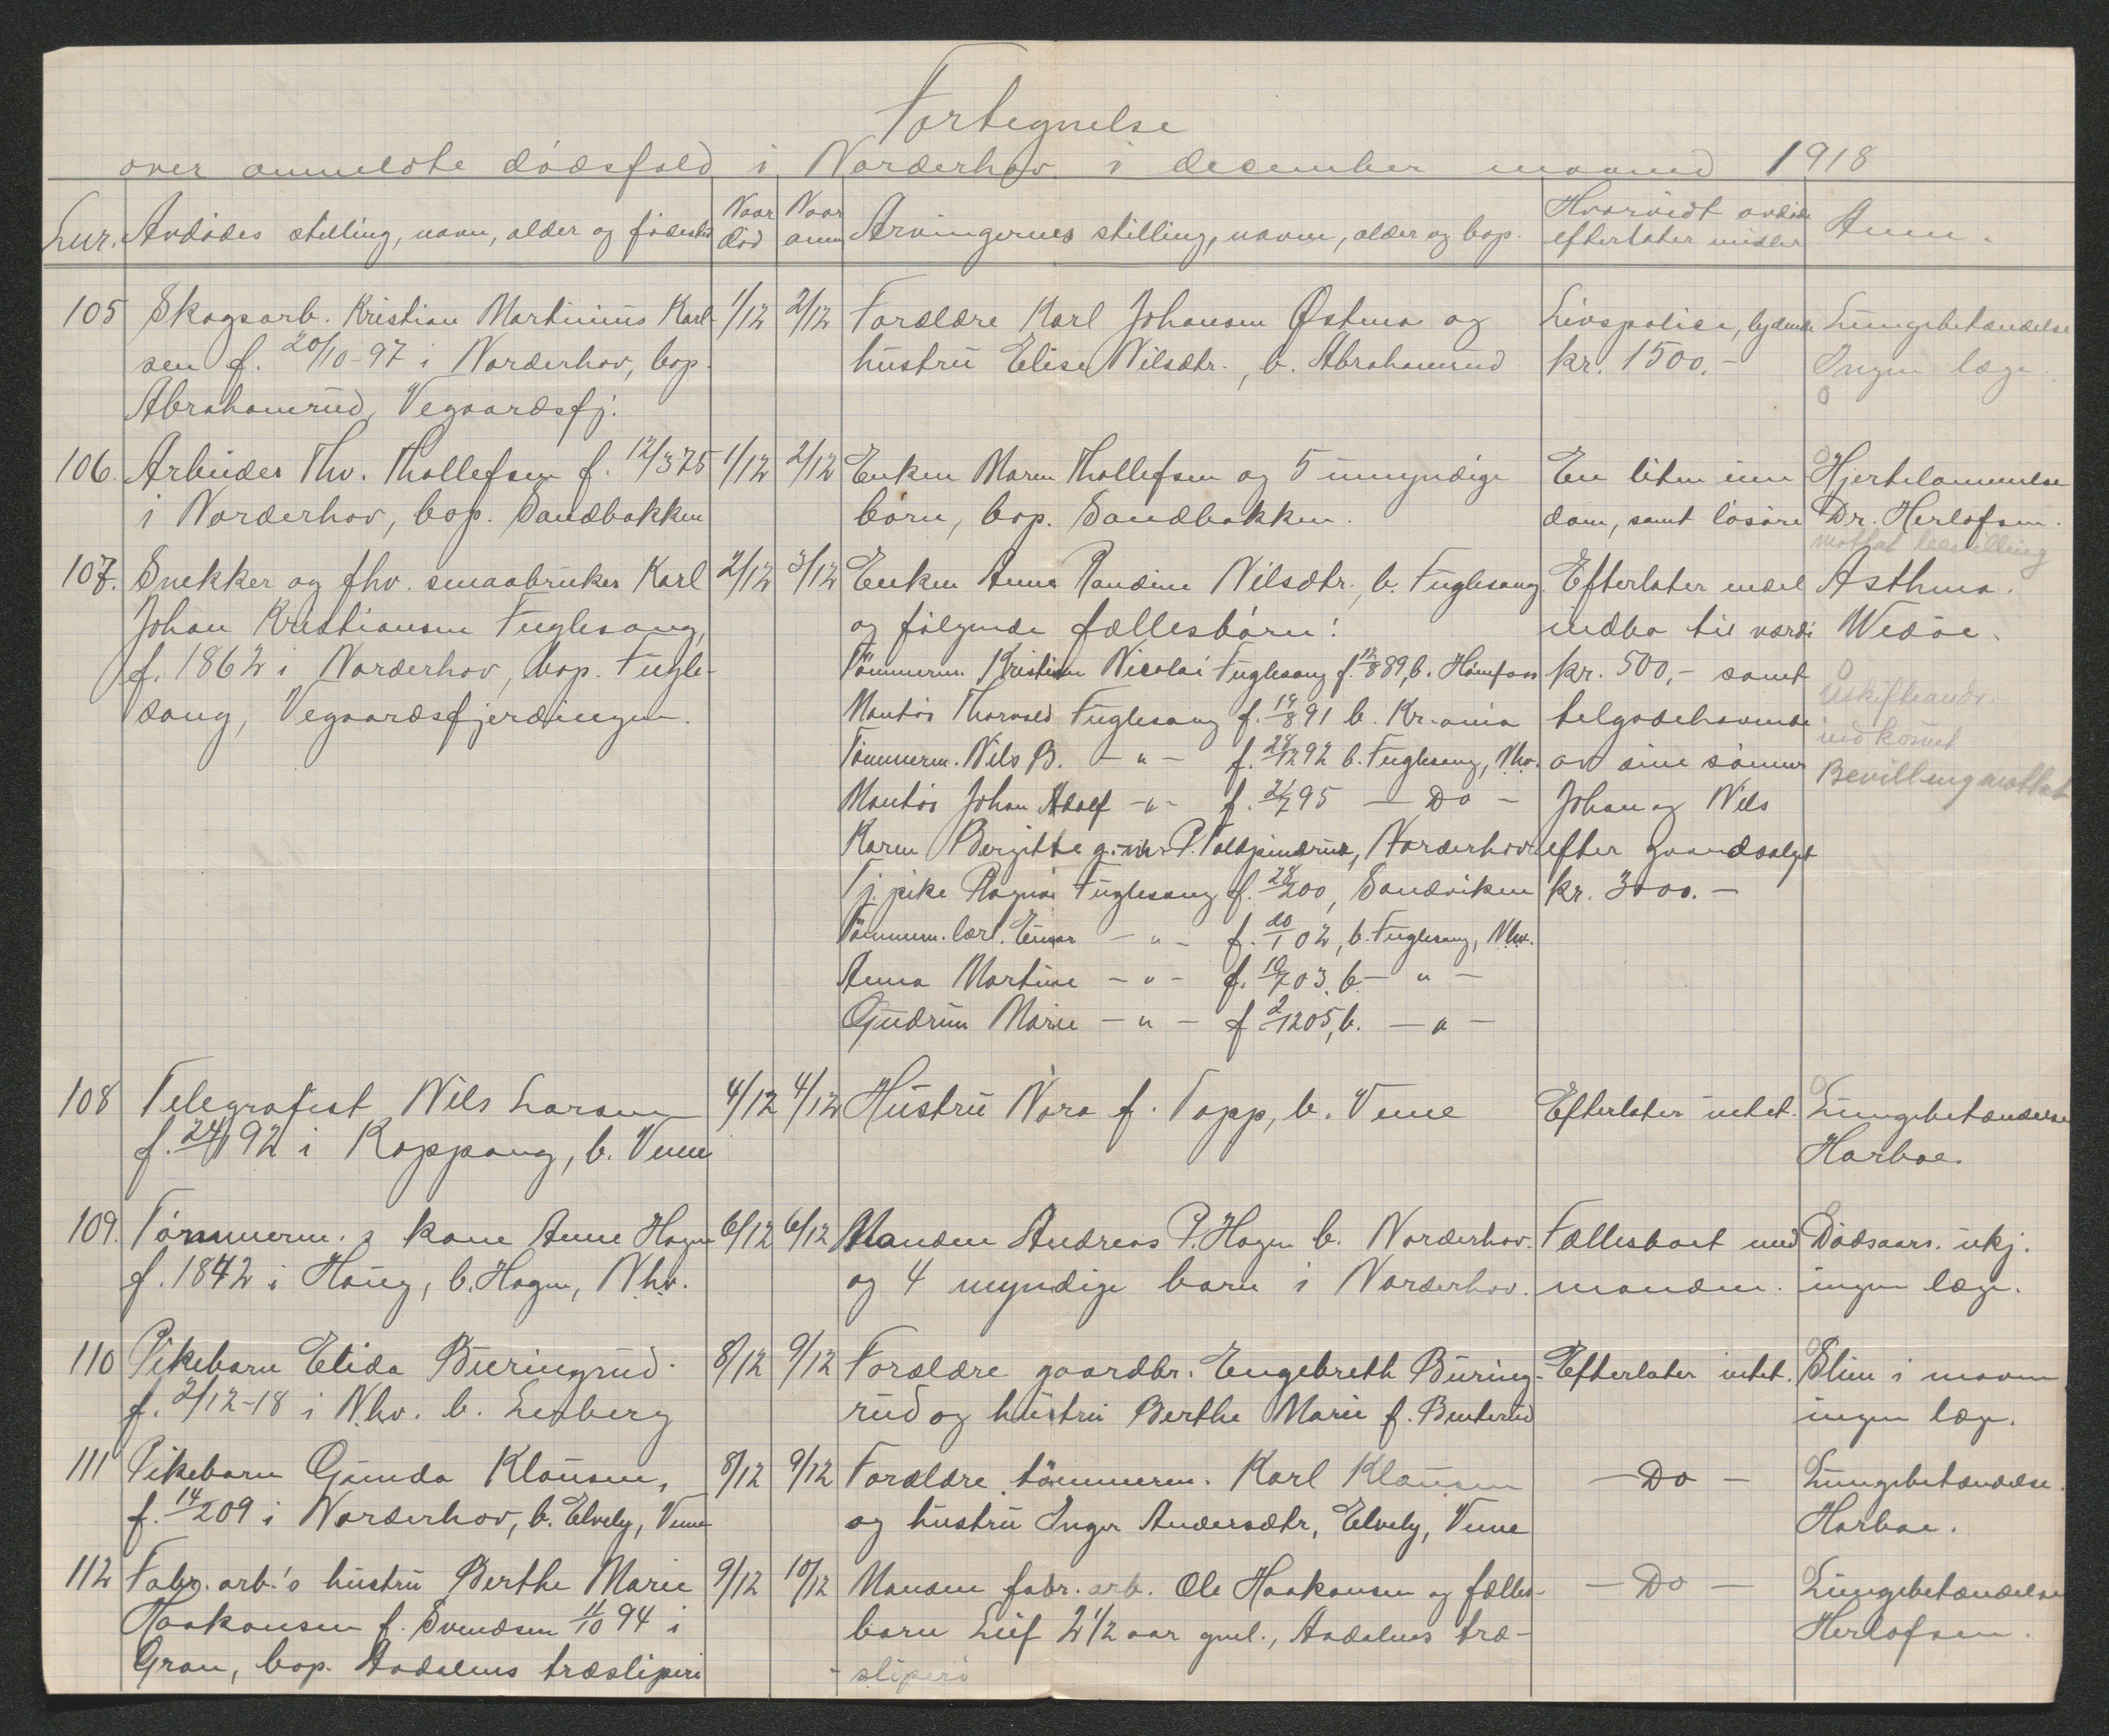 Fortegnelse
over anmeldte dødsfald i Norderhov i december maaned 1918
Lnr. Avdødes stilling, navn, alder og fødested Naar død Naar anm Arvingernes stilling, navn, alder og bop. Hvorvidt avdøde efterlater midler Anm.
105 Skogsarb. Kristian Martinius Karl- 1/12 2/12 Forældre Karl Johansen Østmo og Livspolice, lydende Lungebetændelse
sen f. 20/10-97 i Norderhov, bop. hustru Elise Nilsdtr., b. Abrahamsrud kr. 1500.- Ingen læge.
Abrahamsrud, Vegaardsfj. 0
106. Arbeider Thv. Thollefsen f. 12/3 75 1/12 2/12 Enken Maren Thollefsen og 5 umyndige En liten eien Hjertelammelse
i Norderhov, bop. Sandbakken børn, bop. Sandbakken. dom, samt løsøre Dr. Herlofsen.
mottat bevilling
107. Snekker og fhv. smaabruker Karl 2/12 3/12 Enken Anne Randine Nilsdtr., b. Fuglesang. Efterlater endel Asthma.
Johan Kristiansen Fuglesang, og følgende fællesbørn: indbo til værdi Wedøe.
f. 1862 i Norderhov, bop. Fugle- Tømmerm. Kristian Nicolai Fuglesang f. 12/8 89, b. Hønefoss kr. 500,- samt 0
sang, Vegaardsfjerdingen. Montør Thorvald Fuglesang f. 14/8 91 b. Kr.ania tilgodehavende Uskifteandr
Tømmerm. Nils B. - " - f. 28/12 92 b. Fuglesang, Nhv. av sine sønner indkomet
Montør Johan Adolf - " - f. 21/7 95 - Do - Johan og Nils Bevilling mottat
Karen Bergitte g. m. P. Toldpinrud, Norderhov efter gaardsalget
Tj. pike Ragna Fuglesang f. 28/2 00, Sandviken kr. 3000.-
Tømmerm. lærl. Einar - " - f. 20/1 02, b. Fuglesang, Nhv.
Anna Martine - " - f. 10/7 03, b. - " -
Gudrun Marie - " - f. 2/12 05, b. - " -
108 Telegrafist Nils Larsen 4/12 4/12 Hustru Nora f. Topp, b. Veme Efterlater intet. Lungebetændelse
f. 24/1 92 i Koppang, b. Veme Harboe.
109. Tømmerm. s kone Anne Hagen 6/12 6/12 Manden Andreas P. Hagen b. Norderhov. Fællesboet med Dødsaars. ukj.
f. 1842 i Haug, b. Hagen, Nhv. og 4 myndige barn i Norderhov. manden. ingen læge.
110 Pikebarn Elida Buringrud 8/12 9/12 Forældre gaardbr. Engebreth Buring- Efterlater intet. Slim i maven
f. 2/12-18 i Nhv. b. Lesberg rud og hustru Berthe Marie f. Benterud ingen læge.
111 Pikebarn Gunda Klausen, 8/12 9/12 Forældre tømmerm. Karl Klausen - Do - Lungebetændelse.
f. 14/2 09 i Norderhov, b. Elvely, Veme og hustru Inger Andersdtr, Elvely, Veme Harboe.
112 Fabr. arb.'s hustru Berthe Marie 9/12 10/12 Manden fabr. arb. Ole Haakonsen og fælles- - Do - Lungebetændelse
Haakonsen f. Svendsen 11/10 94 i barn Leif 2 1/2 aar gml., Aadalens træ- Herlofsen.
Gran, bop. Aadalens træsliperi - sliperi